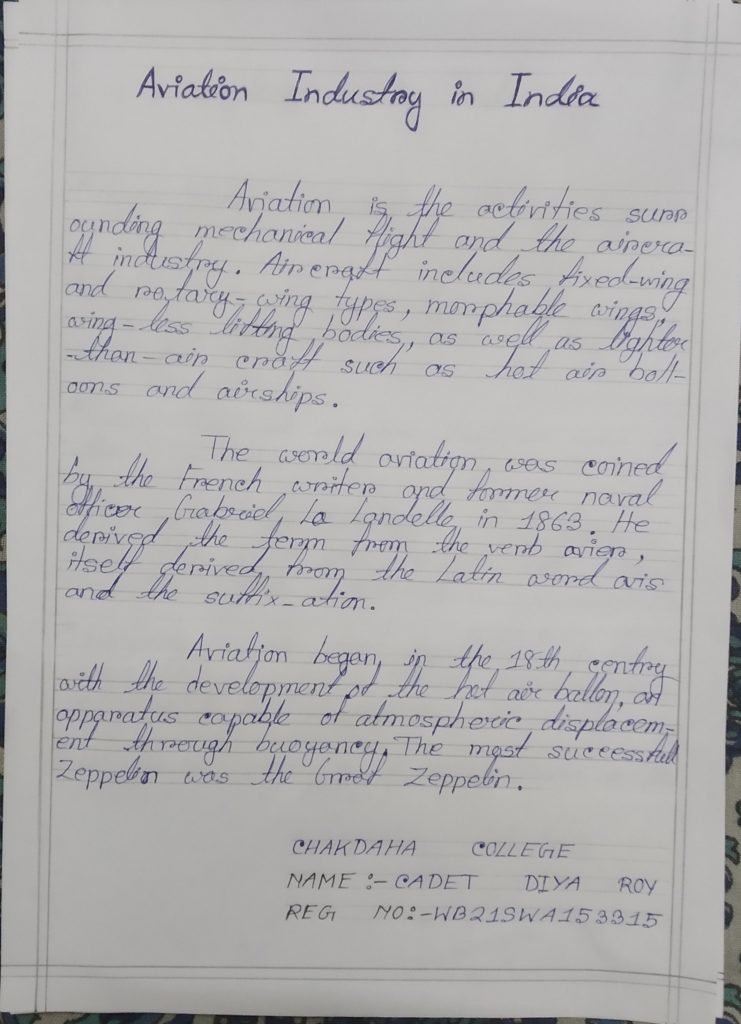 Aviation Industry in India
Aviation is the activities surr
ounding mechanical flight and the aircra-
ft industry. Aircraft includes fixed-wing
and rotary-wing types, morphable wings,
wing-less lifting bodies, as well as lighter
-than-air craft such as hot air ball-
oons and airships.
The world aviation was coined
by the French writer and former naval
officer Gabriel La Landelle in 1863. He
derived the term from the verb avier,
itself derived from the Latin word avis
and the suffix-ation.
Aviation began in the 18th centry
with the development of the hot air ballon, an
apparatus capable of atmospheric displacem-
ent through buoyancy. The most successfull
Zeppelin was the Graf Zeppelin.
CHAKDAHA COLLEGE
NAME :- CADET DIYA ROY
REG NO:-WB21SWA153315